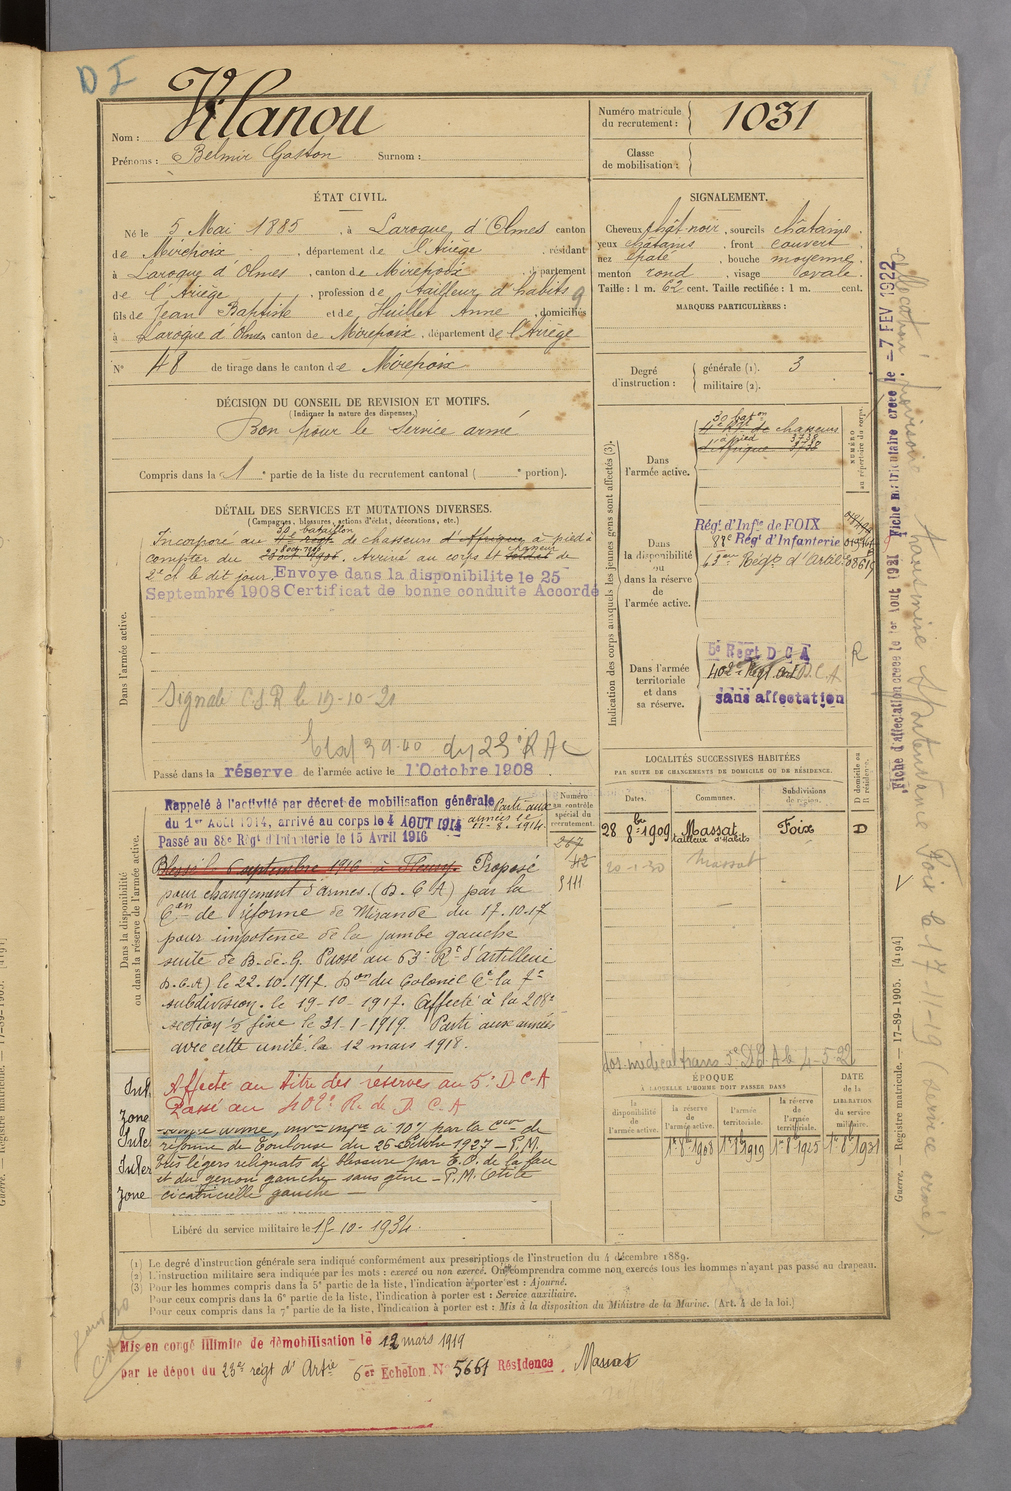 D I
Nom : Vilanou
Prénoms : Belmir Gaston Surnom :
Numéro matricule du recrutement : 1031
Classe de mobilisation :
ÉTAT CIVIL.
Né le 5 Mai 1885, à Laroque d'Olmes canton
de Mirepoix, département de l'Ariège, résidant
à Laroque d'Olmes, canton de Mirepoix, département
de l'Ariège, profession de tailleur d'habits
fils de Jean Baptiste et de Huillet Anne, domiciliés
à Laroque d'Olmes canton de Mirepoix, département de l'Ariège
N° 48 de tirage dans le canton de Mirepoix
SIGNALEMENT.
Cheveux chât noir, sourcils châtains
yeux châtains, front couvert
nez épaté, bouche moyenne
menton rond, visage ovale.
Taille : 1 m. 62 cent. Taille rectifiée : 1 m. cent.
MARQUES PARTICULIÈRES :
DÉCISION DU CONSEIL DE REVISION ET MOTIFS.
(Indiquer la nature des dispenses.)
Bon pour le service armé
Compris dans la 1e partie de la liste du recrutement cantonal ( e portion).
Degré d'instruction : générale (1). 3
militaire (2).
DÉTAIL DES SERVICES ET MUTATIONS DIVERSES.
(Campagnes, blessures, actions d'éclat, décorations, etc.)
30 bataillon
Incorporé au de chasseurs d'Afrique à pied à
compter du . Arrivé au corps et soldat de
2e cl le dit jour. Envoyé dans la disponibilité le 25
Septembre 1908 Certificat de bonne conduite Accordé
Dans l'armée active.
Signalé C.S.R le 19-10-21
du 23e R A C
Passé dans la réserve de l'armée active le 1 Octobre 1908
Indication des corps auxquels les jeunes gens sont affectés (3).
Dans l'armée active.
30 bat on
chasseurs
à pied 3738
d'Afrique 3738
NUMÉRO au répertoire du corps.
Dans la disponibilité ou dans la réserve de l'armée active.
Rég. d'Inf.ie de FOIX
88e Rég. d'Infanterie
63e Régt d'Artil. 08619
Dans l'armée territoriale et dans sa réserve.
5e Régt D C A
402e Régt Art D.C.A
sans affectation
R
Dans la disponibilité ou dans la réserve de l'armée active.
Rappelé à l'activité par décret de mobilisation générale
du 1er Août 1914, arrivé au corps le 4 AOUT 1914
Parti aux armées le 11-8-1914
Passé au 88e Régt d'Infanterie le 15 Avril 1916
Blessé le 6 septembre 1916 à Fleury. Proposé
pour changement d'armes. (D.C.A) par la
Cen de réforme de Mirande du 17-10-17
pour impotence de la jambe gauche
suite de B. de G. Passé au 63e Rt d'artillerie
D.C.A) le 22-10-1917. Don du Colonel Ct la 7e
subdivision. le 19-10-1917. Affecté à la 208e
section ½ fixe le 31-1-1919. Parti aux armées
avec cette unité la 12 mars 1918.
Affecté au titre des réserves au 5e D.C.A
Passé au 402e R. de D.C.A
à 10% par la Con de
réforme de Toulouse du 26 1927 – P.M.
très légers reliquats de blessure par E.O. de la face
et du genou gauche sans gêne – P.M.
cicatricielle gauche –
Numéro au contrôle spécial du recrutement.
267
412
5111
Libéré du service militaire le 15-10-1934.
LOCALITÉS SUCCESSIVES HABITÉES
PAR SUITE DE CHANGEMENTS DE DOMICILE OU DE RÉSIDENCE.
Dates. Communes. Subdivisions de région. D domicile ou R résidence.
28 8bre 1909 Massat tailleur d'habits Foix D
20-1-30 Massat
dos. médical trans 5e D C A le 4-5-22
ÉPOQUE
À LAQUELLE L'HOMME DOIT PASSER DANS
la disponibilité de l'armée active. la réserve de l'armée active. l'armée territoriale. la réserve de l'armée territoriale. DATE de la LIBÉRATION du service militaire.
1er 8bre 1908 1er 8bre 1919 1er 8bre 1925 1er 8bre 1931
(1) Le degré d'instruction générale sera indiqué conformément aux prescriptions de l'instruction du 4 décembre 1889.
(2) L'instruction militaire sera indiquée par les mots : exercé ou non exercé. On comprendra comme non exercés tous les hommes n'ayant pas passé au drapeau.
(3) Pour les hommes compris dans la 5e partie de la liste, l'indication à porter est : Ajourné.
Pour ceux compris dans la 6e partie de la liste, l'indication à porter est : Service auxiliaire.
Pour ceux compris dans la 7e partie de la liste, l'indication à porter est : Mis à la disposition du Ministre de la Marine. (Art. 4 de la loi.)
Mis en congé illimité de démobilisation le 12 mars 1919
par le dépôt du 23e régt d'Artie 6er Echelon N° 5661 Résidence Massat
Fiche d'affectation créée le 1er Aout 1921 Fiche matriculaire créée le - 7 FEV. 1922
Guerre. — Registre matricule. — 17-89-1905. [4194]